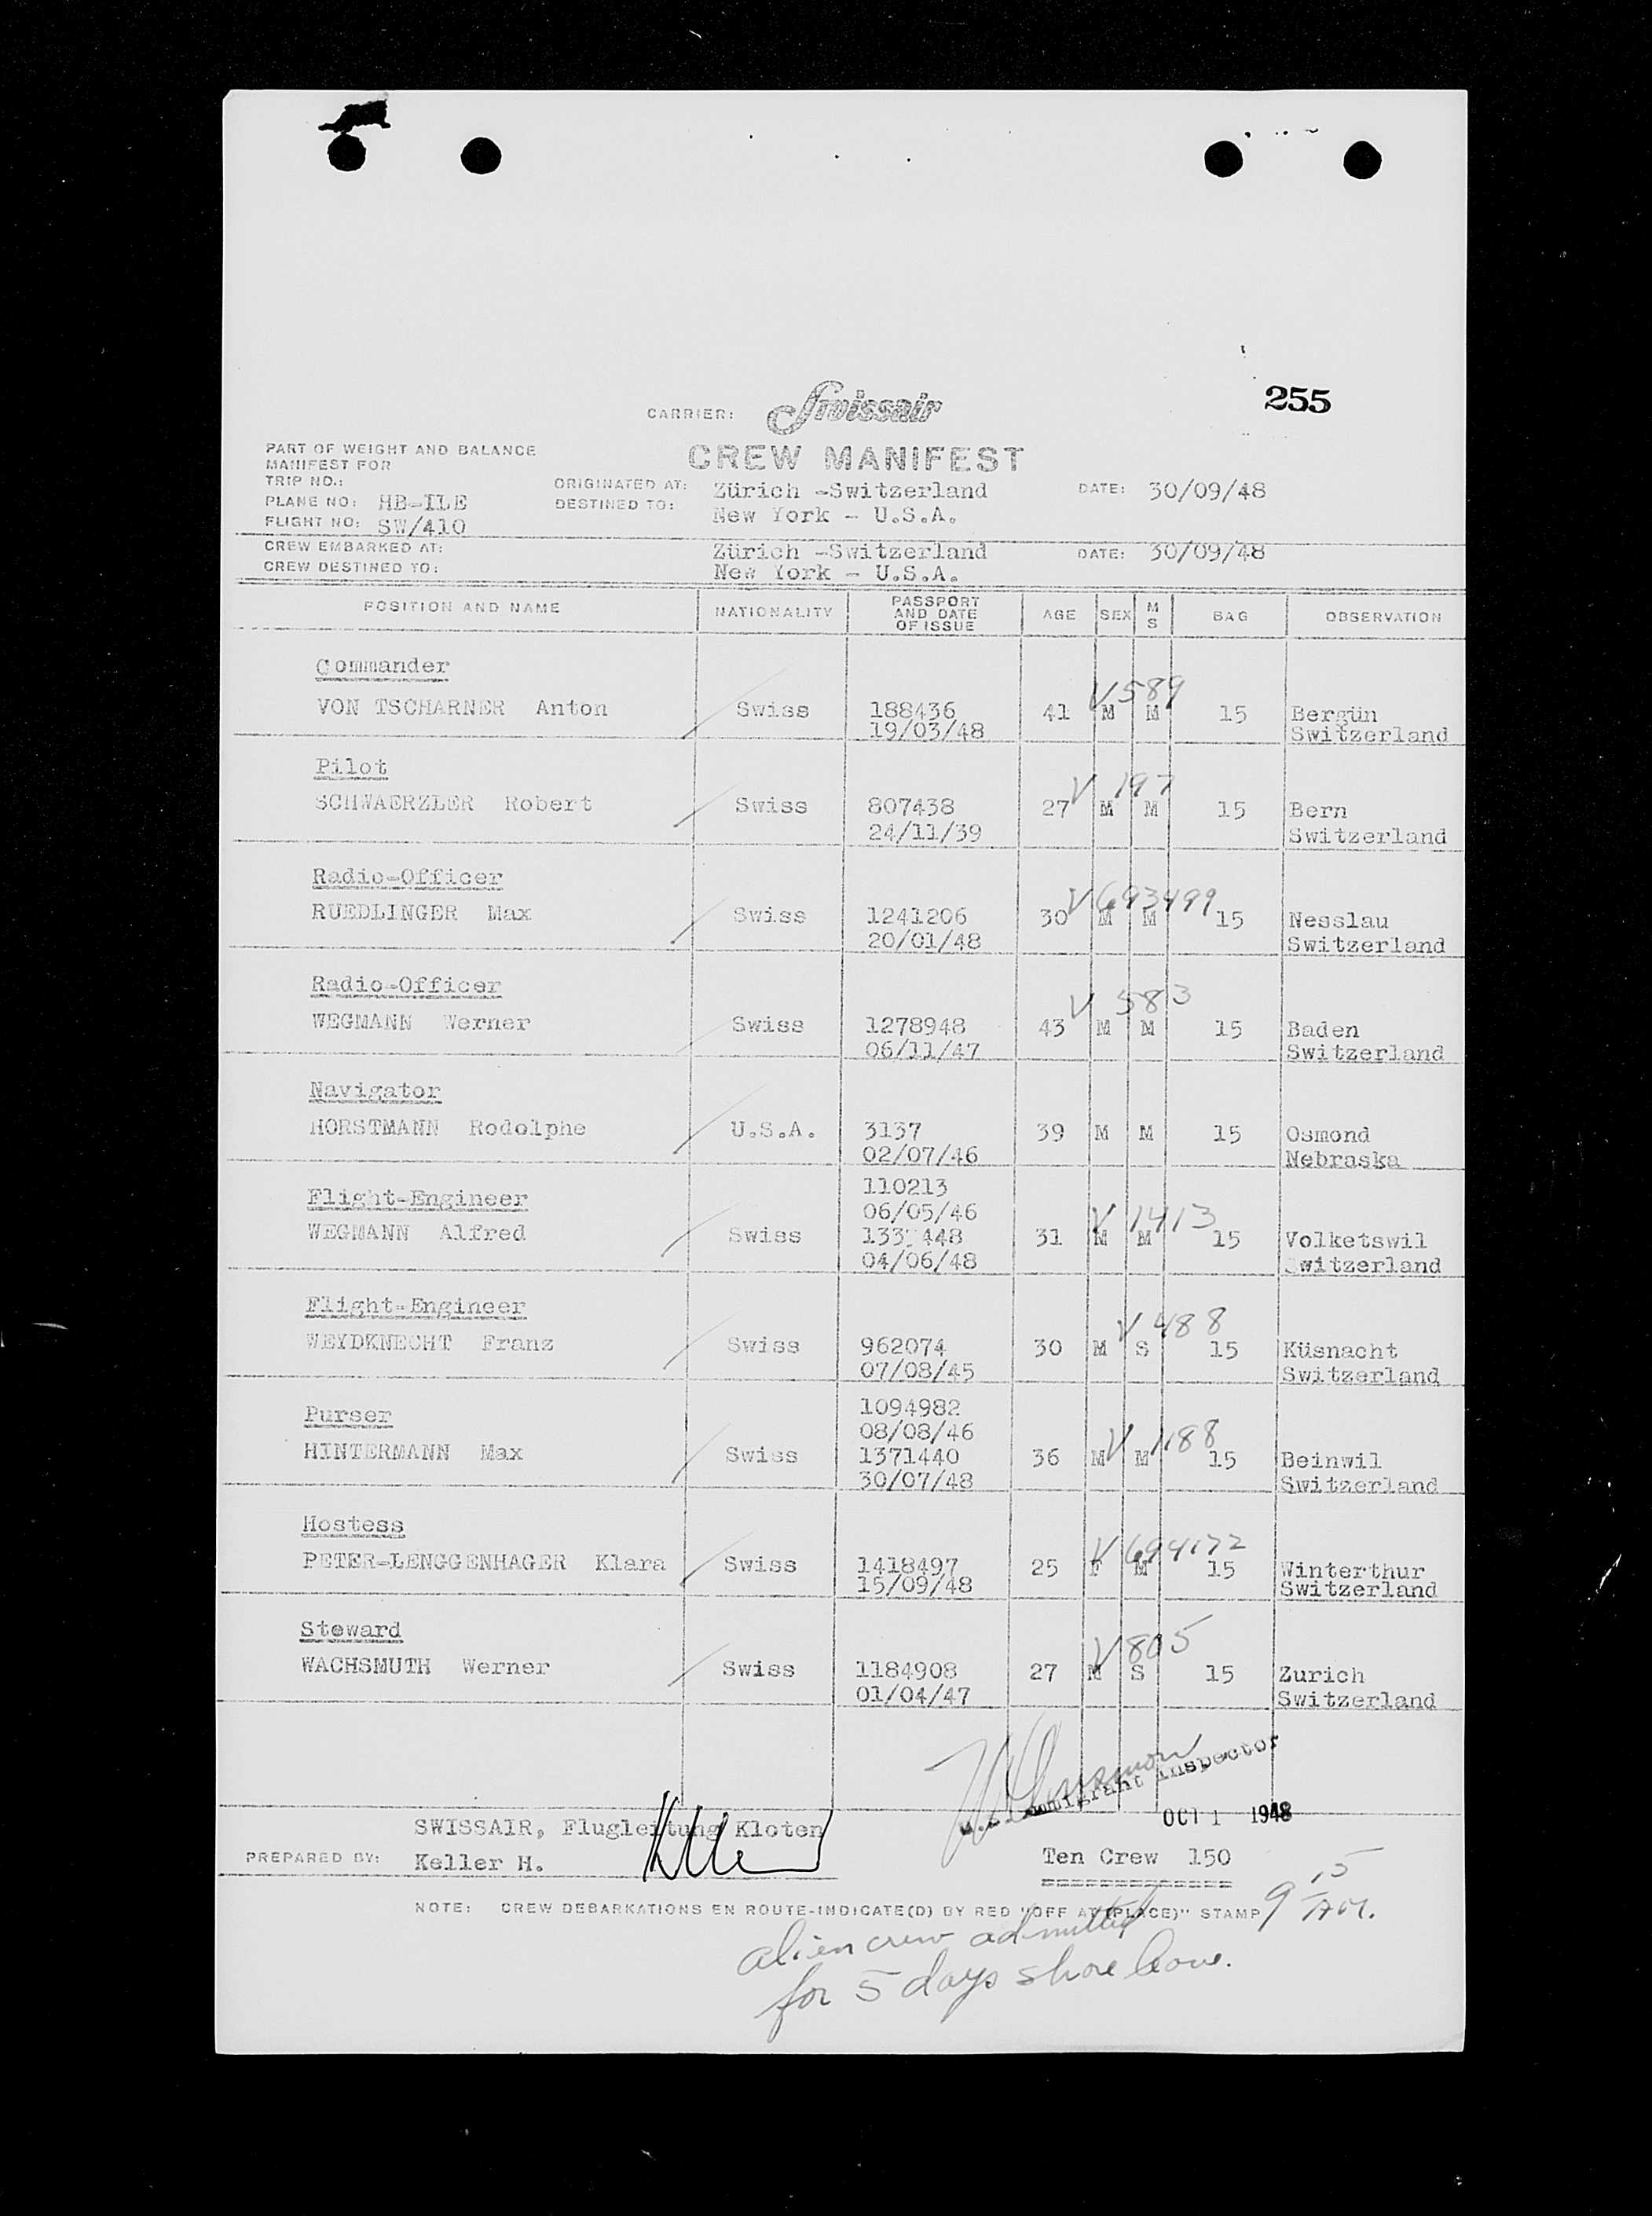 255
CARRIER: Swissair
PART OF WEIGHT AND BALANCE
MANIFEST FOR
CREW MANIFEST
TRIP NO.:
ORIGINATED AT: Zürich -Switzerland DATE: 30/09/48
PLANE NO: HB-ILE
DESTINED TO: New York - U.S.A.
FLIGHT NO: SW/410
CREW EMBARKED AT: Zürich -Switzerland DATE: 30/09/48
CREW DESTINED TO: New York - U.S.A.
POSITION AND NAME NATIONALITY PASSPORT AND DATE OF ISSUE AGE SEX M S BAG OBSERVATION
Commander
V 589
VON TSCHARNER Anton Swiss 188436 41 M M 15 Bergün
19/03/48 Switzerland
Pilot
V 197
SCHWAERZLER Robert Swiss 807438 27 M M 15 Bern
24/11/39 Switzerland
Radio-Officer
V 693499
RUEDLINGER Max Swiss 1241206 30 M M 15 Nesslau
20/01/48 Switzerland
Radio-Officer
V 583
WEGMANN Werner Swiss 1278948 43 M M 15 Baden
06/11/47 Switzerland
Navigator
HORSTMANN Rodolphe U.S.A. 3137 39 M M 15 Osmond
02/07/46 Nebraska
110213
Flight-Engineer
06/05/46 V 1413
WEGMANN Alfred Swiss 31 M M 15 Volketswil
04/06/48 Switzerland
Flight-Engineer
V 488
WEYDKNECHT Franz Swiss 962074 30 M S 15 Küsnacht
07/08/45 Switzerland
1094982
Purser
08/08/46 V 1188
HINTERMANN Max Swiss 1371440 36 M M 15 Beinwil
30/07/48 Switzerland
Hostess
V 694172
PETER-LENGGENHAGER Klara Swiss 1418497 25 F M 15 Winterthur
15/09/48 Switzerland
Steward
V 805
WACHSMUTH Werner Swiss 1184908 27 M S 15 Zurich
01/04/47 Switzerland
Immigrant Inspector
OCT 1 1948
SWISSAIR, Flugleitung Kloten
PREPARED BY: Keller H.
Ten Crew 150
=============
NOTE: CREW DEBARKATIONS EN ROUTE-INDICATE(D) BY RED "OFF AT (PLACE)" STAMP
9 15 AM.
alien crew admitted
for 5 days shore leave.